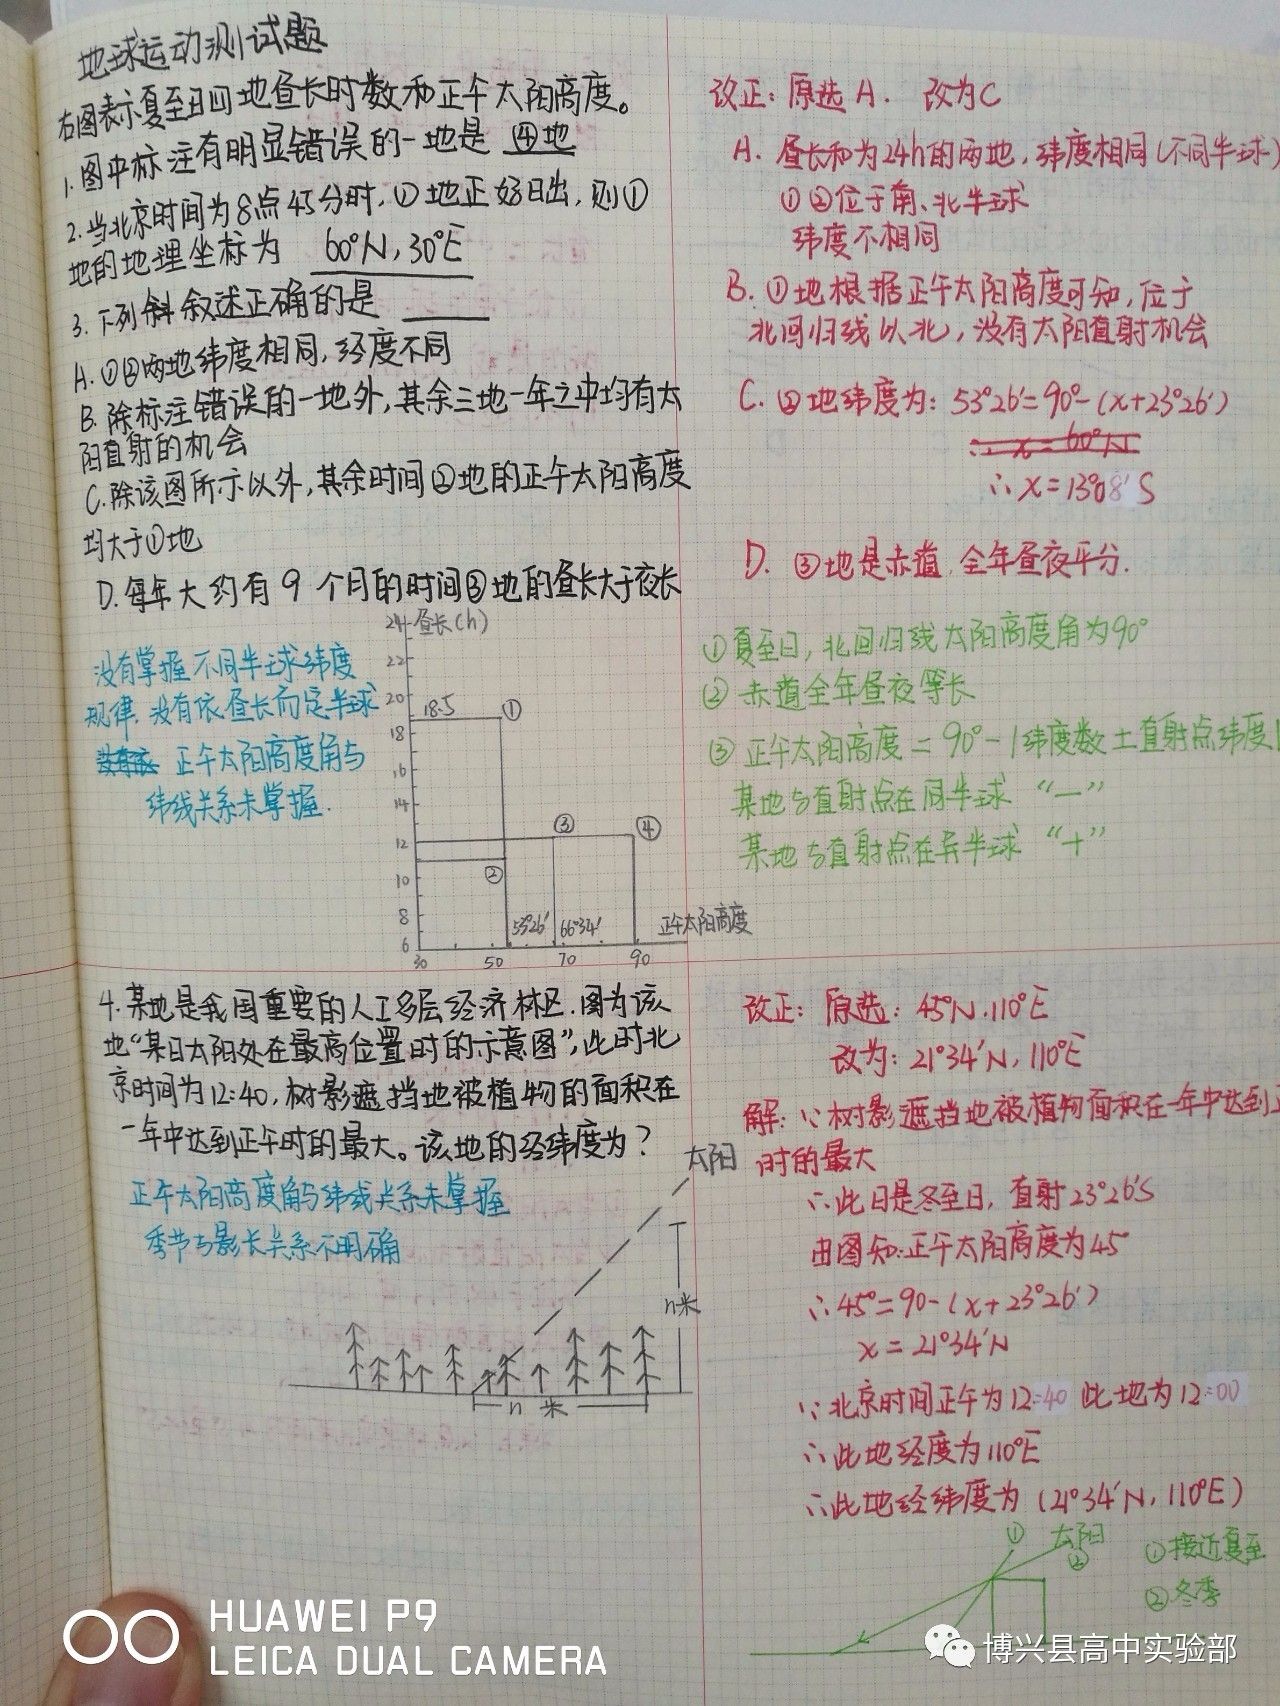 地球运动测试题
右图表示夏至日四地昼长时数和正午太阳高度。
1.图中标注有明显错误的一地是 ④地
2.当北京时间为8点45分时,①地正好日出,则①
地的地理坐标为 60°N,30°E
3.下列斜叙述正确的是
A.①②两地纬度相同,经度不同
B.除标注错误的一地外,其余三地一年之中均有太
阳直射的机会
C.除该图所示以外,其余时间②地的正午太阳高度
均大于①地
D.每年大约有9个月的时间③地的昼长大于夜长
没有掌握不同半球纬度
规律,没有依昼长而定半球
没有依 正午太阳高度角与
纬线关系未掌握.
24 昼长(h)
22
20
18.5 ①
18
16
14
12 ③ ④
②
10
8
53°26′ 66°34′ 正午太阳高度
6
30 50 70 90
改正: 原选A. 改为C
A. 昼长和为24h的两地,纬度相同(不同半球)
①②位于南、北半球
纬度不相同
B.①地根据正午太阳高度可知,位于
北回归线以北,没有太阳直射机会
C.②地纬度为:53°26′=90°-(x+23°26′)
∴x=60°N
∴x=13°08′S
D. ③地是赤道,全年昼夜平分.
①夏至日,北回归线太阳高度角为90°
②赤道全年昼夜等长
③正午太阳高度=90°-|纬度数±直射点纬度|
某地与直射点在同半球 “—”
某地与直射点在异半球 “+”
4.某地是我国重要的人工多层经济林区.图为该
地“某日太阳处在最高位置时的示意图”,此时北
京时间为12:40,树影遮挡地被植物的面积在
一年中达到正午时的最大。该地的经纬度为?
正午太阳高度角与纬线关系未掌握
季节与影长关系不明确
太阳
n米
n 米
改正: 原选:45°N.110°E
改为:21°34′N,110°E
解:∵树影遮挡地被植物面积在一年中达到正
时的最大
∴此日是冬至日,直射23°26′S
由图知:正午太阳高度为45°
∴45°=90-(x+23°26′)
x=21°34′N
∵北京时间正午为12:40 此地为12:00
∴此地经度为110°E
∴此地经纬度为(21°34′N,110°E)
① 太阳
②
①接近夏至
②冬季
HUAWEI P9
LEICA DUAL CAMERA
博兴县高中实验部